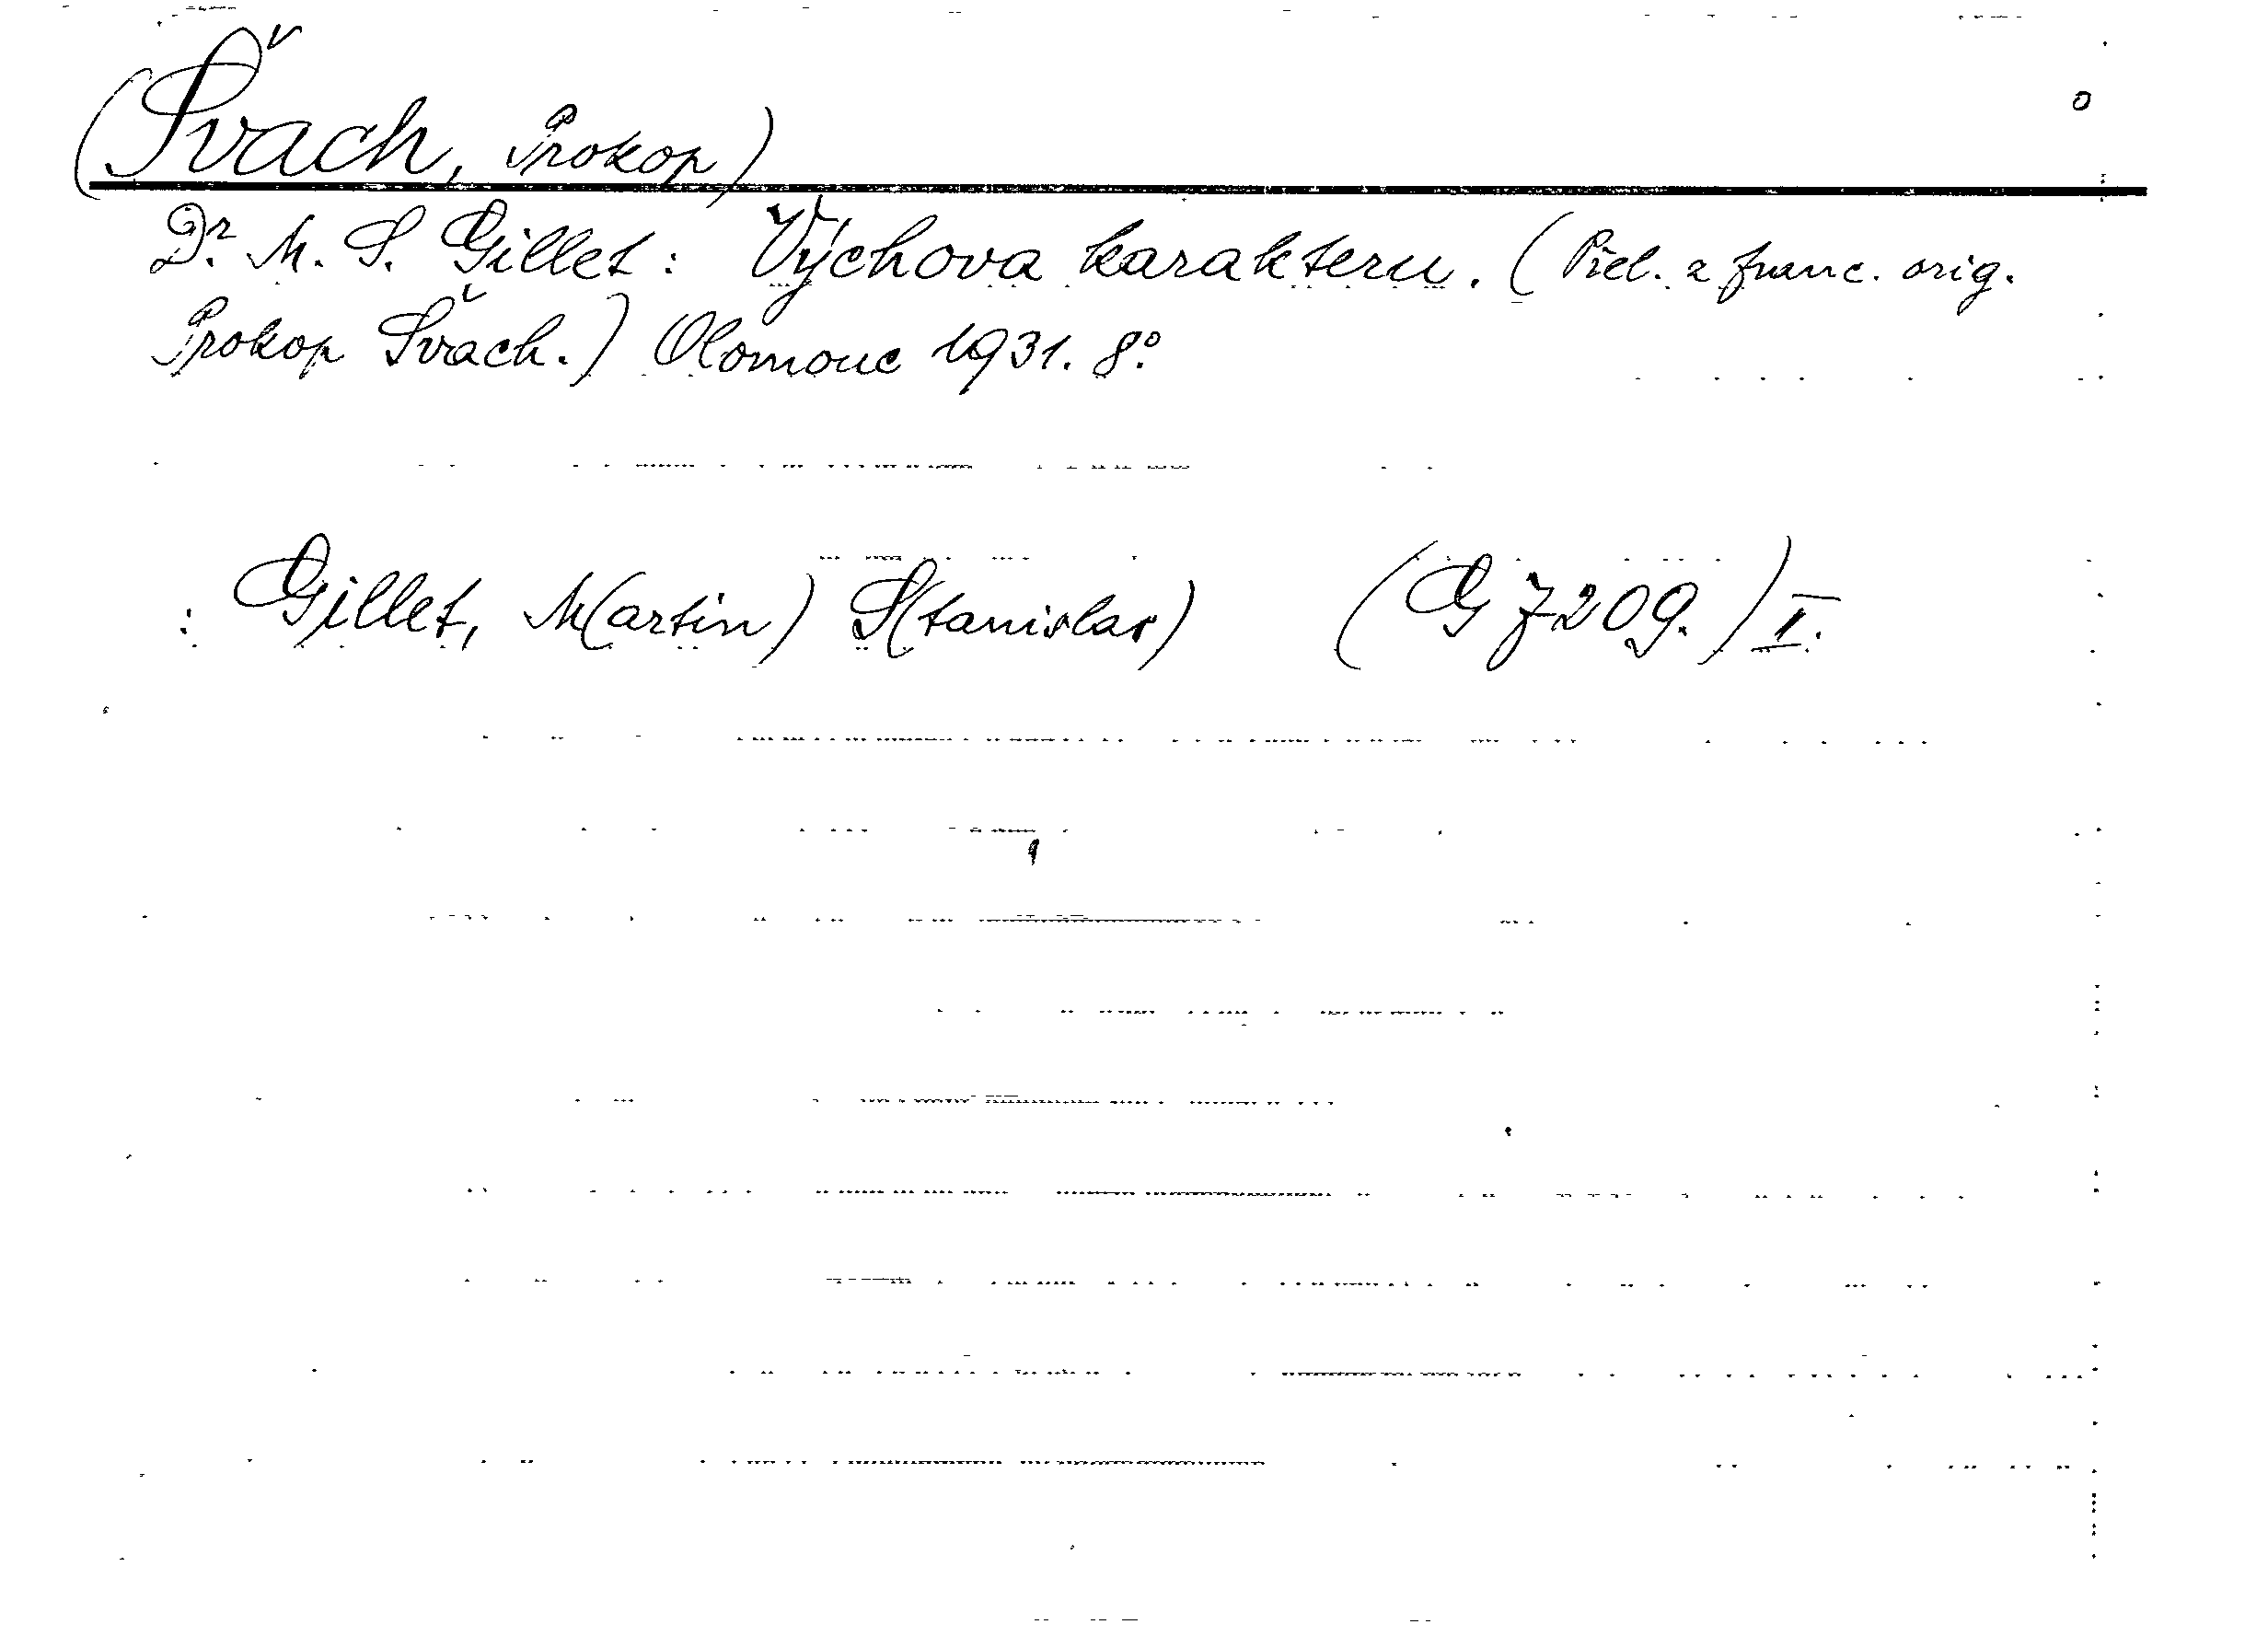 (Švach, Prokop)
Dr. M. S. Gillet: Výchova karakteru. (Přel. z franc. orig.
Prokop Švach.) Olomouc 1931. 8°.
: Gillet, M(artin) S(tanislav) (G 7209.) I.